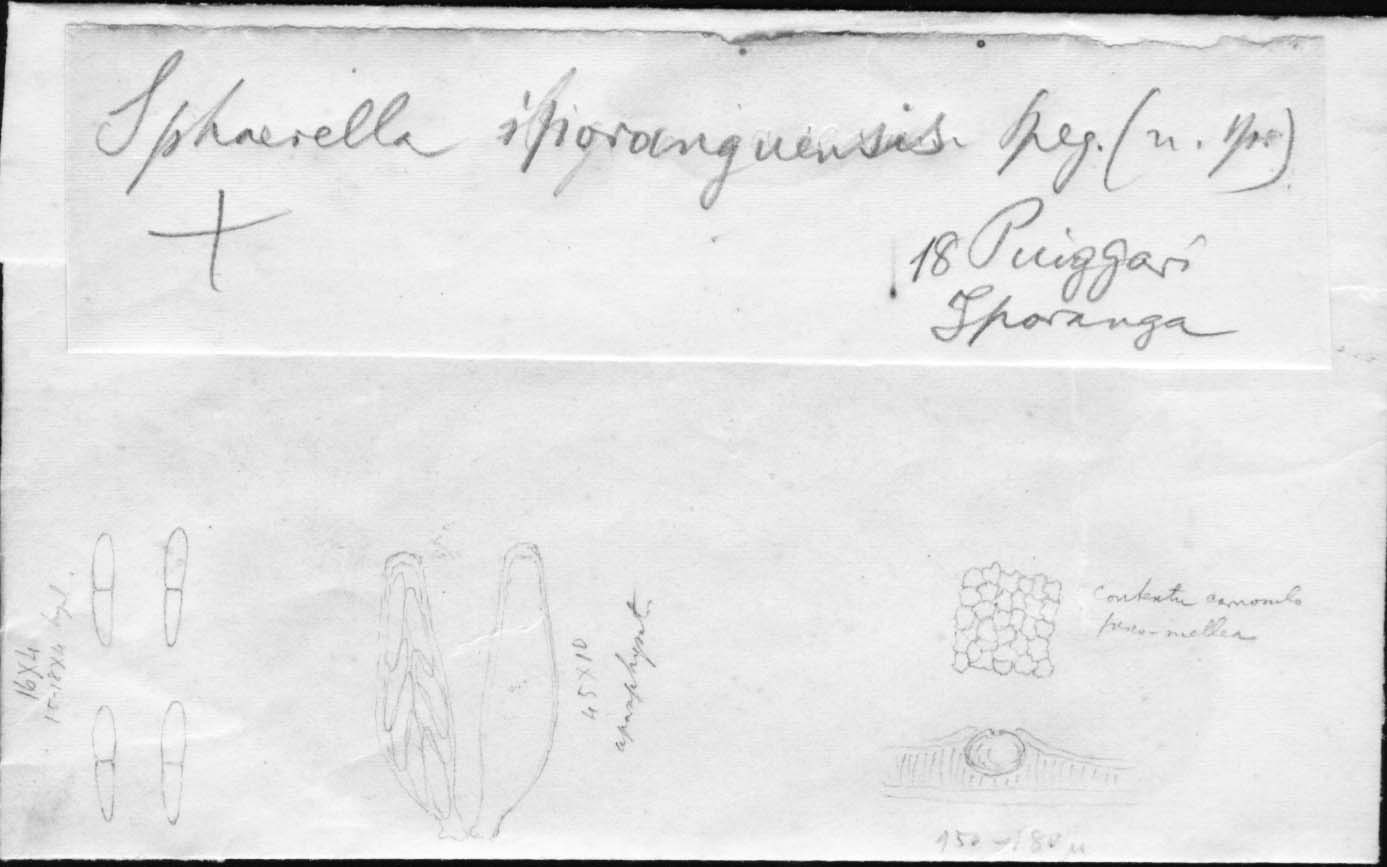 Sphaerella iporanguensis Speg. (n. sp.)
+
18 Puiggari
Iporanga
16X4
15-18X4 hyal.
45X10
aparaphysat.
contextu
150-180 µ